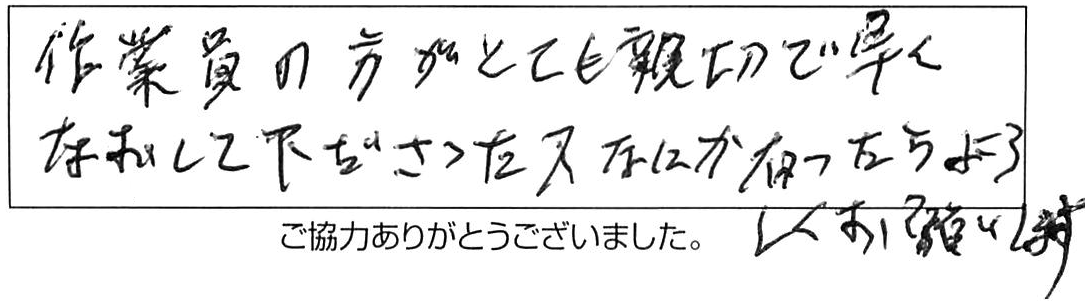 作業員の方がとても親切で早く
なおして下ださった又なにか有ったらよろ
しくお願いします
ご協力ありがとうございました。